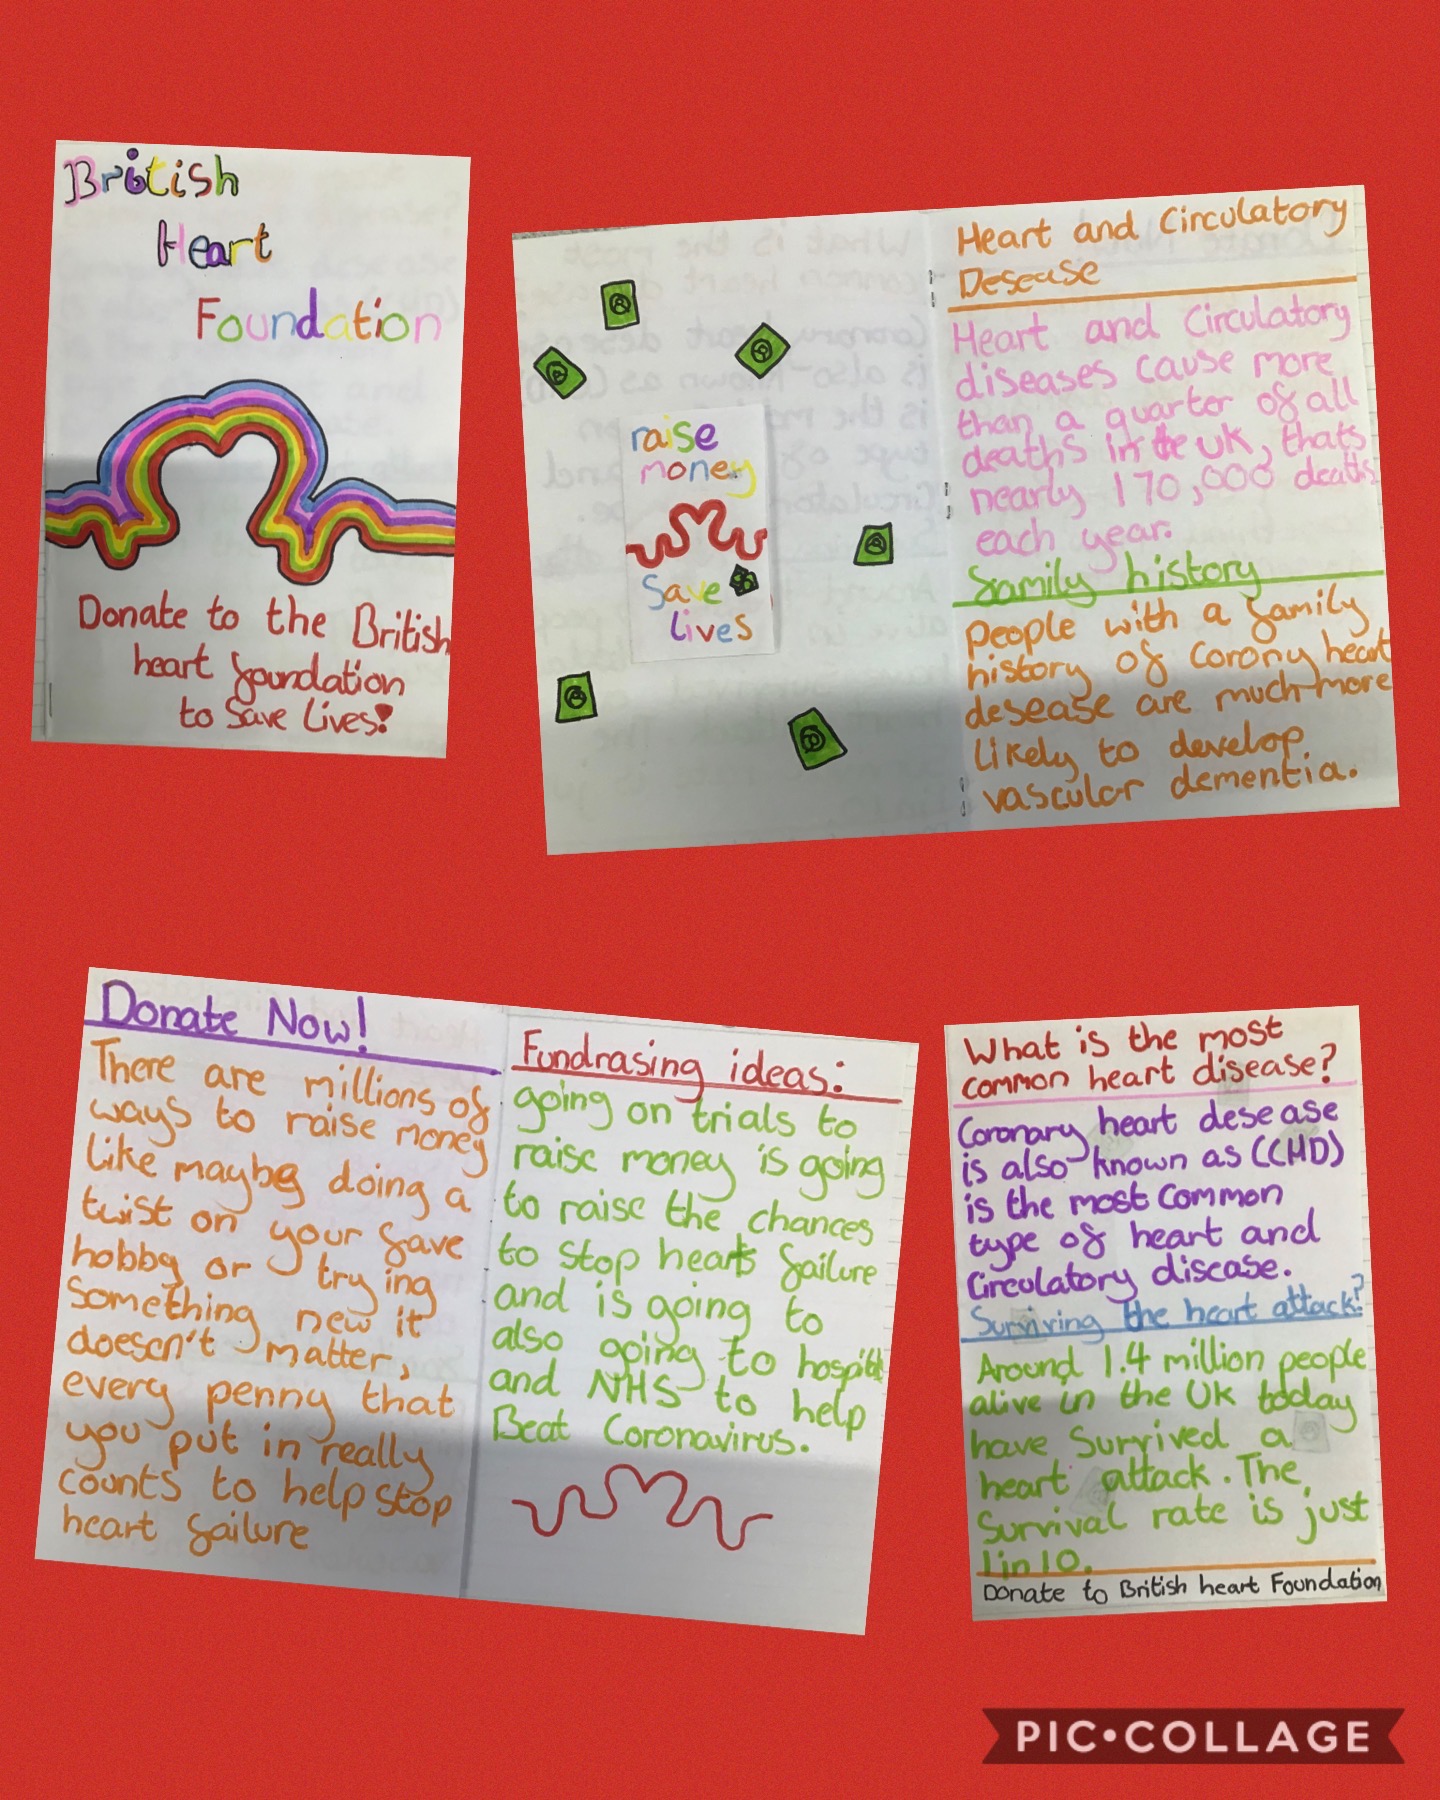 British
Heart
Foundation
Donate to the British
heart foundation
to save lives!
raise
money
Save
lives
Heart and Circulatory
Desease
Heart and Circulatory
diseases cause more
than a quarter of all
deaths in the UK, thats
nearly 170,000 deaths
each year.
family history
People with a family
history of corony heart
desease are much more
likely to develop
vascular dementia.
Donate Now!
There are millions of
ways to raise money
like maybe doing a
twist on your fave
hobby or trying
something new it
doesen't matter,
every penny that
you put in really
counts to help stop
heart failure
Fundrasing ideas:
going on trials to
raise money is going
to raise the chances
to stop hearts failure
and is going to
also going to hospital
and NHS to help
Beat Coronavirus.
What is the most
common heart disease?
Coronary heart desease
is also known as (CHD)
is the most common
type of heart and
Circulatory disease.
Surviving the heart attack?
Around 1.4 million people
alive in the UK today
have survived a
heart attack. The
Survival rate is just
1 in 10.
Donate to British heart Foundation
PIC•COLLAGE